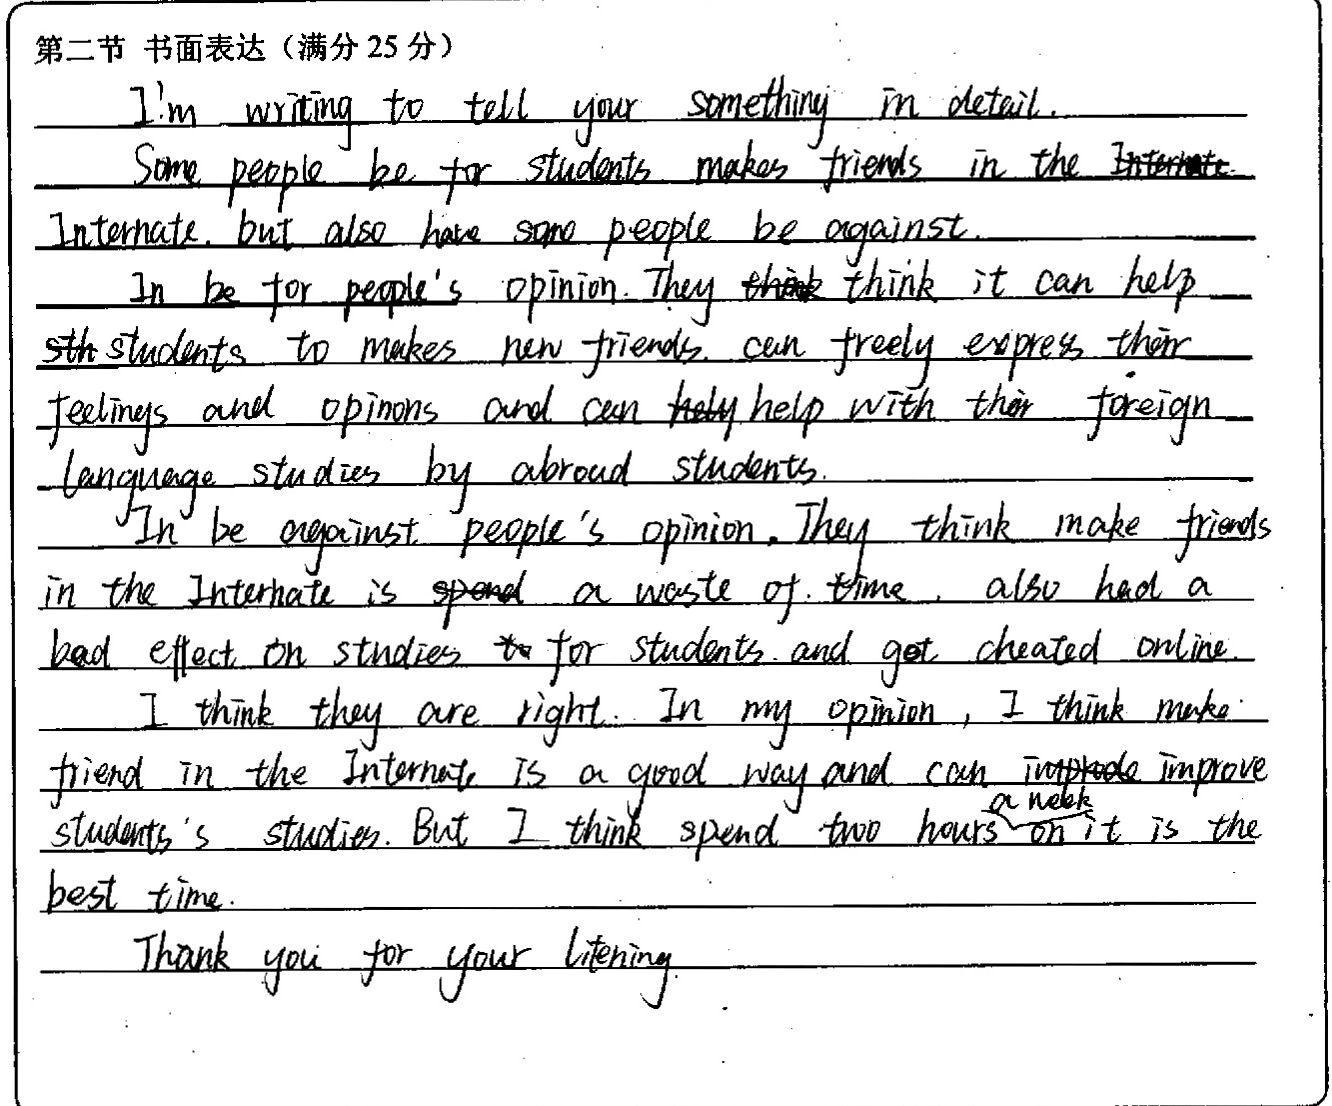 第二节 书面表达（满分 25 分）
I'm writing to tell your something in detail.
Some people be for students makes friends in the Internate
Internate. but also have some people be against.
In be for people's opinion. They think think it can help
sth students to makes new friends. can freely express their
feelings and opinons and can hely help with their foreign
language studies by abroud students.
In be against people's opinion. They think make friends
in the Internate is spend a waste of time. also had a
bad effect on studies to for students and got cheated online.
I think they are right. In my opinion, I think make
friend in the Internate is a good way and can improve
students's studies. But I think spend two hours a week on it is the
best time.
Thank you for your litening.